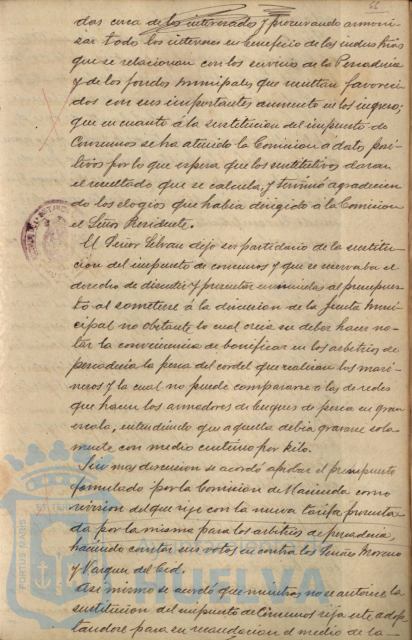 66
das cerca de los interesados y procurando armoni-
zar todos los intereses en beneficio de las industrias
que se relacionan con los servicios de la Pescadería
y de los fondos municipales que resultan favoreci-
dos con un importante aumento en los ingresos;
que en cuanto á la sustitucion del impuesto de
Consumos se ha atenido la Comision a datos posi-
tivos por lo que espera que los sustitutivos daran
el resultado que se calcula, y terminó agradecien-
do los elogios que había dirigido á la Comision
el Señor Presidente.
El Señor dijo ser partidario de la sustitu-
cion del impuesto de consumos y que se reservaba el
derecho de discutir y presentar enmiendas al presupues-
to al someterse á la discusion de la Junta muni-
cipal no obstante lo cual creía un deber hacer no-
tar la conveniencia de bonificar en los arbitrios de
pescadería la pesca del cordel que realizan los mari-
neros y la cual no puede compararse a las de redes
que hacen los armadores de buques de pesca en gran
escala, entendiendo que aquella debia gravarse sola-
mente con medio centimo por kilo.
Sin mas discusion se acordó aprobar el presupuesto
formulado por la Comision de Hacienda como
revision del que rije con la nueva tarifa presenta-
da por la misma para los arbitrios de pescadería,
haciendo constar sus votos en contra los Señores Moreno
y Marquez del Cid.
Asi mismo se acordó que mientras no se autorice la
sustitucion del impuesto de Consumos rija este adop-
tandose para su recaudacion el medio de la
PORTUS MARIS
HUELVA